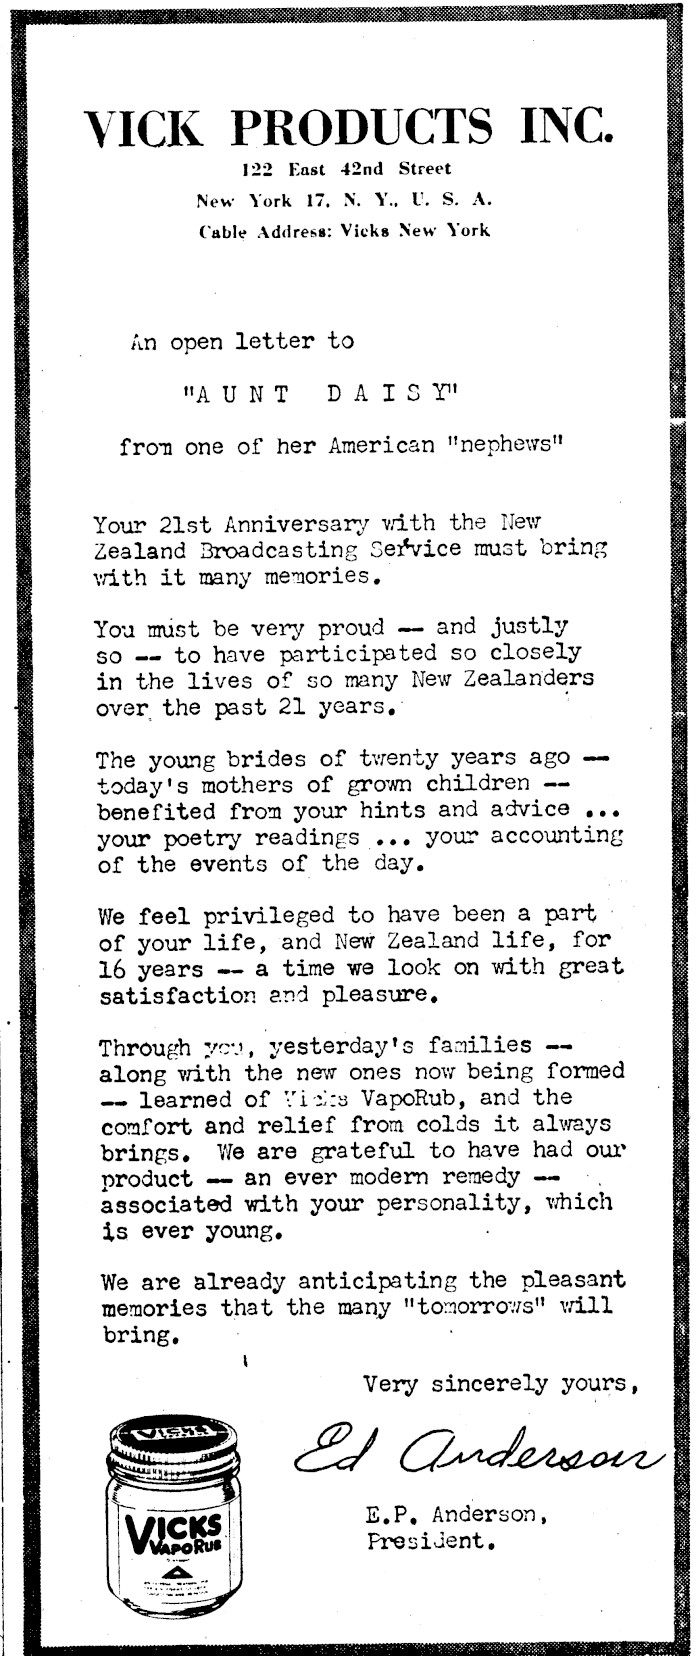 VICK PRODUCTS INC.
122 East 42nd Street
New York 17, N. Y., U. S. A.
Cable Address: Vicks New York
An open letter to
"AUNT DAISY"
from one of her American "nephews"
Your 21st Anniversary with the New
Zealand Broadcasting Service must bring
with it many memories.
You must be very proud -- and justly
so -- to have participated so closely
in the lives of so many New Zealanders
over the past 21 years.
The young brides of twenty years ago --
today's mothers of grown children --
benefited from your hints and advice ...
your poetry readings ... your accounting
of the events of the day.
We feel privileged to have been a part
of your life, and New Zealand life, for
16 years -- a time we look on with great
satisfaction and pleasure.
Through you, yesterday's families --
along with the new ones now being formed
-- learned of Vicks VapoRub, and the
comfort and relief from colds it always
brings. We are grateful to have had our
product -- an ever modern remedy --
associated with your personality, which
is ever young.
We are already anticipating the pleasant
memories that the many "tomorrows" will
bring.
Very sincerely yours,
Ed Anderson
E.P. Anderson,
President.
VICKS
VICKS
VAPORUB